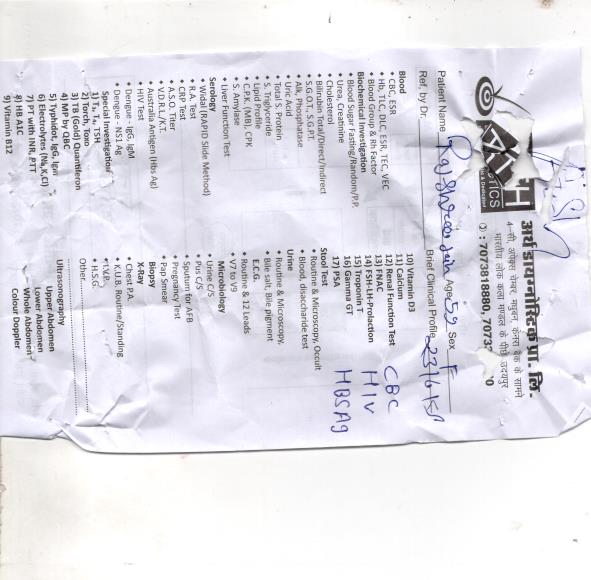 अर्थ डायग्नोस्टिक प्रा. लि.
4-सी, अपेक्स चेम्बर, मधुबन, केनरा बैंक के सामने
भारतीय लोक कला मण्डल के पीछे उदयपुर
: 7073818880, 7073
Patient Name Age 59 Sex F
Ref. by Dr. Brief Clinical Profile
Blood
• CBC, ESR
• Hb, TLC, DLC, ESR, TEC, VEC
• Blood Group & Rh Factor
Biochemical Investigation
• Blood Sugar Fasting/Random/P.P.
• Urea, Creatinine
• Cholesterol
• Bilirubin Total/Direct/Indirect
• S.G.O.T., S.G.P.T.
• Alk, Phosphatase
• Uric Acid
• Total S. Protein
• S. Triglyceride
• Lipid Profile
• C.P.K. (MB), CPK
• S. Amylase
• Liver Function Test
Seology
• Widal (RAPID Slide Method)
• R.A. Test
• CRP Test
• A.S.O. Titer
• V.D.R.L./K.T.
• Australia Antigen (Hbs Ag)
• HIV Test
• Dengue - IgG, IgM
• Dengue - NS1 Ag
Special Investigation
1) T₃, T₄, TSH
2) Torch, Toxo
3) TB (Gold) Quantiferon
4) MP by QBC
5) Typhidot, IgG, Igm
6) Electrolytes (Na,K,Cl)
7) PT with INR, PTT
8) HB A1C
9) Vitamin B12
10) Vitamin D3
11) Calcium
12) Renal Function Test
13) FNAC
14) FSH-LH-Prolaction
15) Troponin T
16) Gamma GT
17) PSA
CBC
HIV
HBSAg
Stool Test
• Routine & Microscopy, Occult
• Blood, disaccharide test
Urine
• Routine & Microscopy,
• Bile salt, Bile pigment
E.C.G.
• Routine & 12 Leads
• V7 to V9
Microbiology
• Urine C/S
• Pus C/S
• Sputum for AFB
• Pregnancy Test
• Pap Smear
Biopsy
X-Ray
• Chest P.A.
• K.U.B. Routine/Standing
• I.V.P.
• H.S.G.
Other
Ultrasonography
Upper Abdomen
Lower Abdomen
Whole Abdomen
Colour Doppler